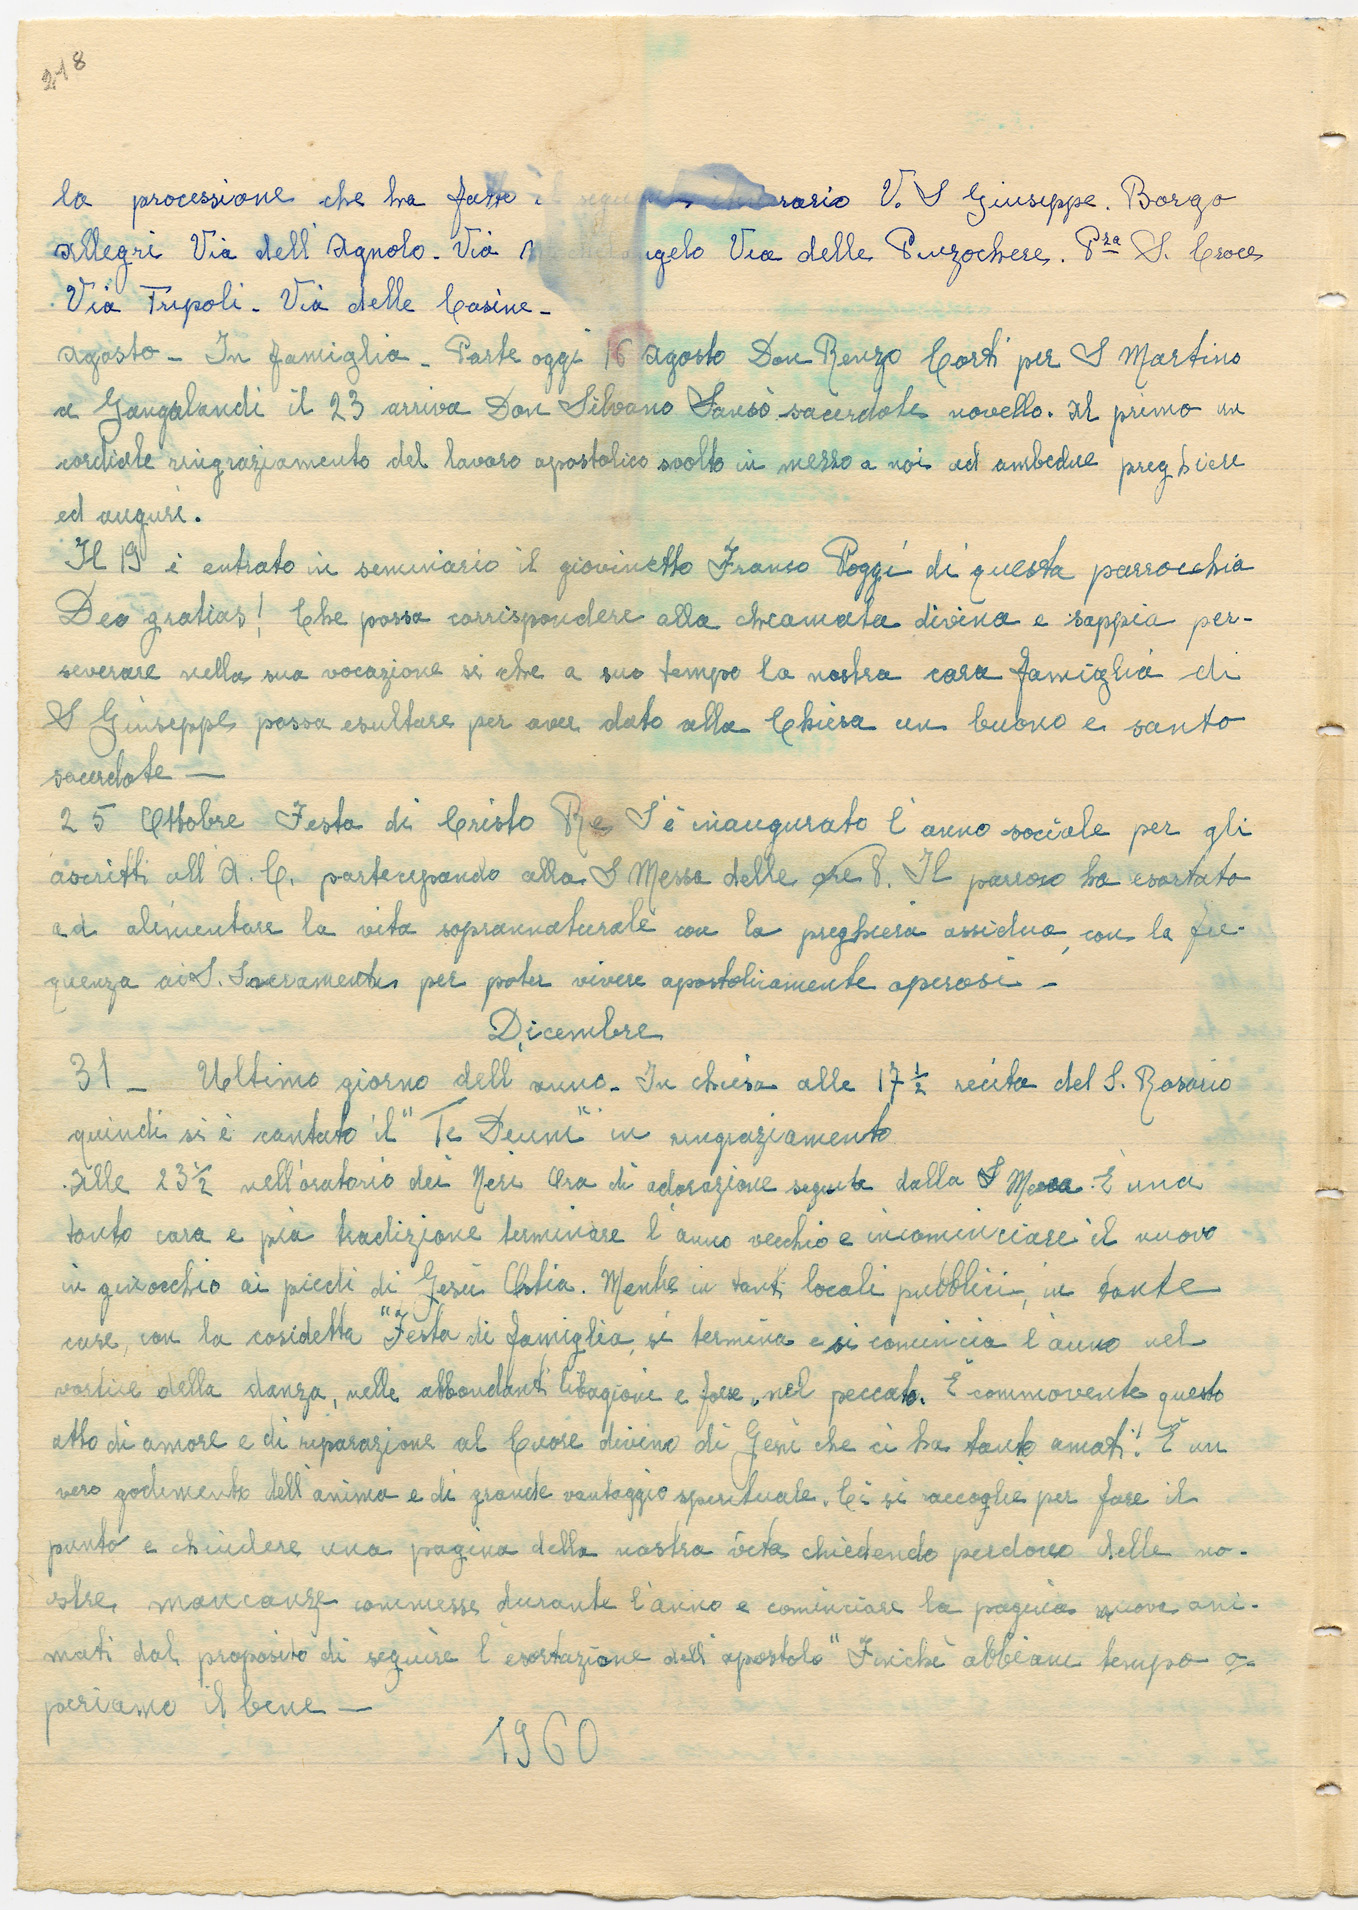 218
la processione che ha fatto il seguente itinerario V. S Giuseppe. Borgo
Allegri Via dell'Agnolo. Via Michelangelo Via delle Pinzochere. Pza S. Croce
Via Tripoli. Via delle Casine_
Agosto _ In famiglia _ Parte oggi 16 Agosto Don Renzo Corti per S Martino
a Gangalandi il 23 arriva Don Silvano Sansò sacerdote novello. Al primo un
cordiale ringraziamento del lavoro apostolico svolto in mezzo a noi ad ambedue preghiere
ed auguri.
Il 19 è entrato in seminario il giovinetto Franco Poggi di questa parrocchia
Deo gratias! Che possa corrispondere alla chiamata divina e sappia per-
severare nella sua vocazione sì che a suo tempo la nostra cara famiglia di
S Giuseppe possa esultare per aver dato alla Chiesa un buono e santo
sacerdote —
25 Ottobre Festa di Cristo Re S'è inaugurato l'anno sociale per gli
ascritti all'A. C. partecipando alla S Messa delle ore 8. Il parroco ha esortato
ad alimentare la vita soprannaturale con la preghiera assidua, con la fre-
quenza ai S. Sacramenti per poter vivere apostolicamente operosi _
Dicembre
31 _ Ultimo giorno dell'anno. In chiesa alle 17 ½ recita del S. Rosario
quindi si è cantato il "Te Deum" in ringraziamento
Alle 23 ½ nell'oratorio dei Neri Ora di adorazione seguita dalla S Messa. È una
tanto cara e pia tradizione terminare l'anno vecchio e incominciare il nuovo
in ginocchio ai piedi di Gesù Ostia. Mentre in tanti locali pubblici, in tante
case, con la cosidetta "Festa di famiglia, si termina e si comincia l'anno nel
vortice della danza, nelle abbondanti libagioni e forse, nel peccato. È commovente questo
atto di amore e di riparazione al Cuore divino di Gesù che ci ha tanto amati! È un
vero godimento dell'anima e di grande vantaggio spirituale. Ci si raccoglie per fare il
punto e chiudere una pagina della nostra vita chiedendo perdono delle no-
stre mancanze commesse durante l'anno e cominciare la pagina nuova ani-
mati dal proposito di seguire l'esortazione dell'apostolo "Finchè abbiamo tempo o-
periamo il bene —
1960